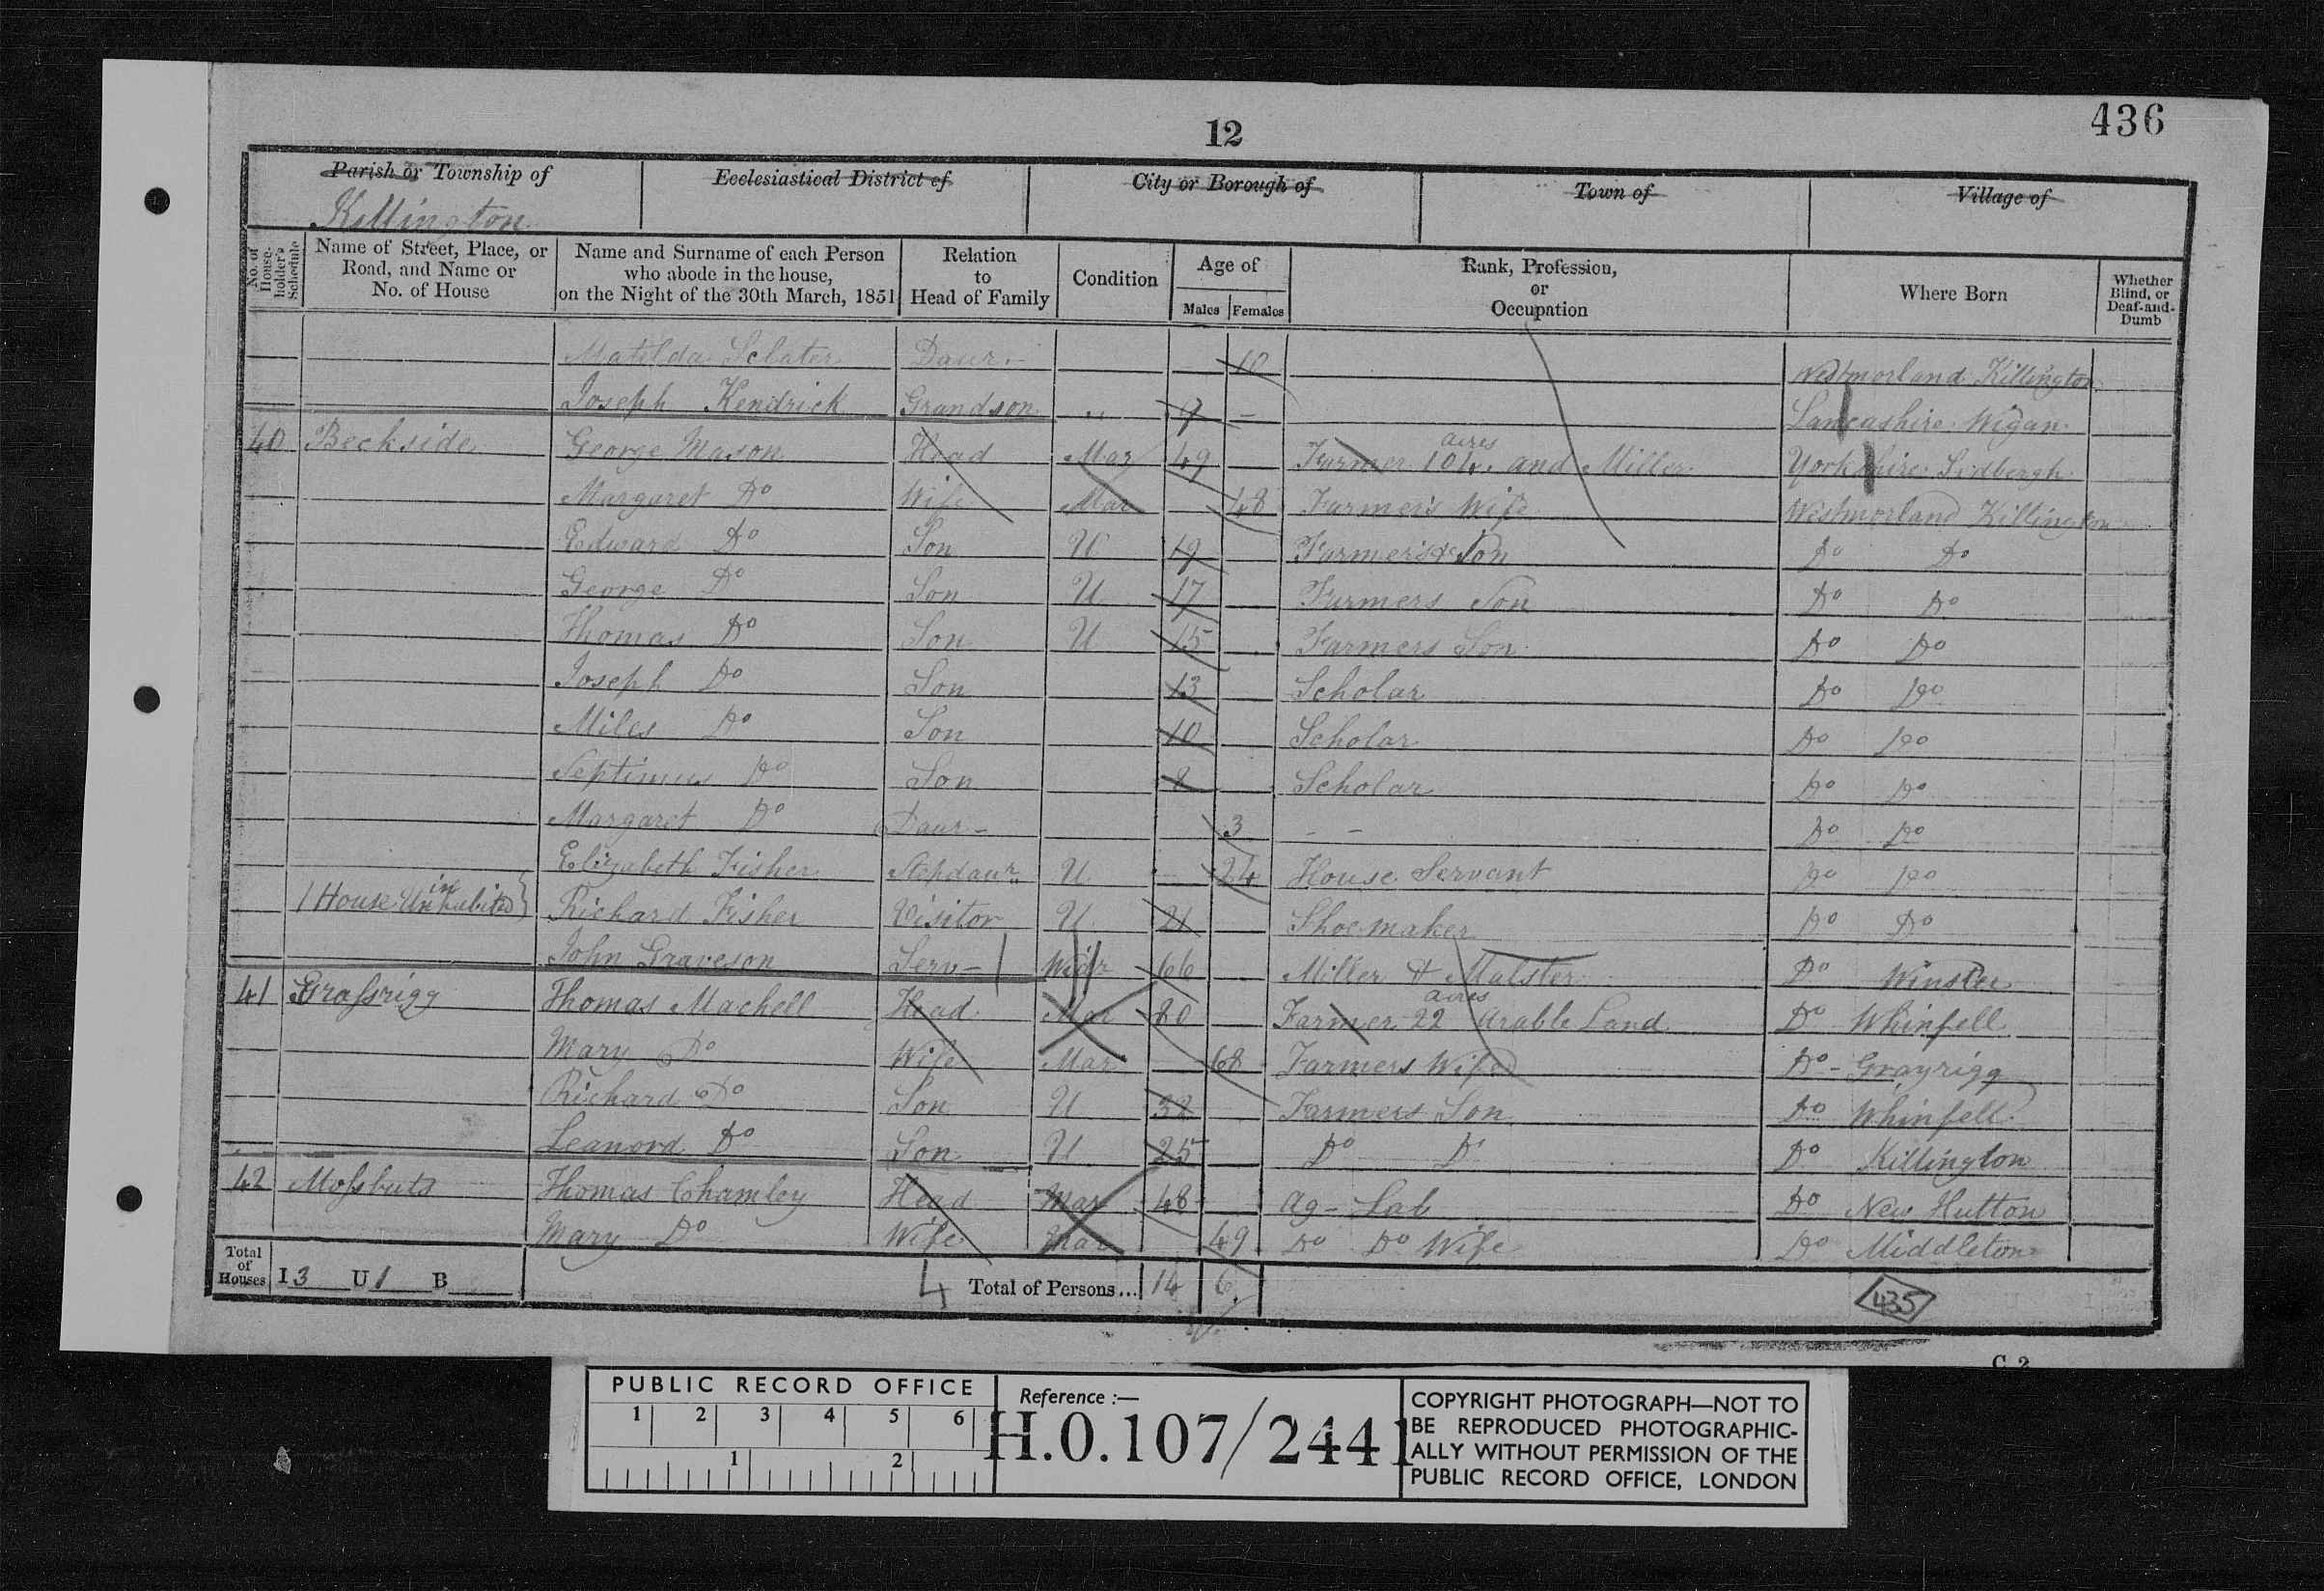 436
12
Parish or Township of Ecclesiastical District of City or Borough of Town of Village of
Killington
No. of House-holder's Schedule
Name of Street, Place, or Road, and Name or No. of House
Name and Surname of each Person who abode in the house, on the Night of the 30th March, 1851
Relation to Head of Family
Condition
Age of
Males Females
Rank, Profession, or Occupation
Where Born
Whether Blind, or Deaf-and-Dumb
Matilda Sclater Daur. 10 Westmorland Killington
Joseph Kendrick Grandson " 9 Lancashire Wigan
40 Beckside George Mason Head Mar 49 Farmer 104 acres and Miller Yorkshire Sedbergh
Margaret Do Wife Mar 48 Farmer's Wife Westmorland Killington
Edward Do Son U 19 Farmer's Son Do Do
George Do Son U 17 Farmers Son Do Do
Thomas Do Son U 15 Farmers Son Do Do
Joseph Do Son 13 Scholar Do Do
Miles Do Son 10 Scholar Do Do
Septimus Do Son 8 Scholar Do Do
Margaret Do Daur - 3 - - Do Do
Elizabeth Fisher Stepdaur U 24 House Servant Do Do
1 House Uninhabited Richard Fisher Visitor U 21 Shoemaker Do Do
John Graveson Serv - Widr 66 Miller & Malster Do Winster
41 Grassrigg Thomas Machell Head Mar 80 Farmer 22 acres Arable Land Do Whinfell
Mary Do Wife Mar 68 Farmers Wife Do - Grayrigg
Richard Do Son U 32 Farmers Son Do Whinfell
Leanord Do Son U 25 Do Do Do Killington
42 Mossbuts Thomas Chamley Head Mar 48 Ag - Lab Do New Hutton
Mary Do Wife Mar 49 Do Do Wife Do Middleton
Total of Houses I 3 U 1 B 4 Total of Persons... 14 6
435
C 2
PUBLIC RECORD OFFICE
1 2 3 4 5 6
1 2
Reference :—
H.O.107/2441
COPYRIGHT PHOTOGRAPH—NOT TO
BE REPRODUCED PHOTOGRAPHIC-
ALLY WITHOUT PERMISSION OF THE
PUBLIC RECORD OFFICE, LONDON